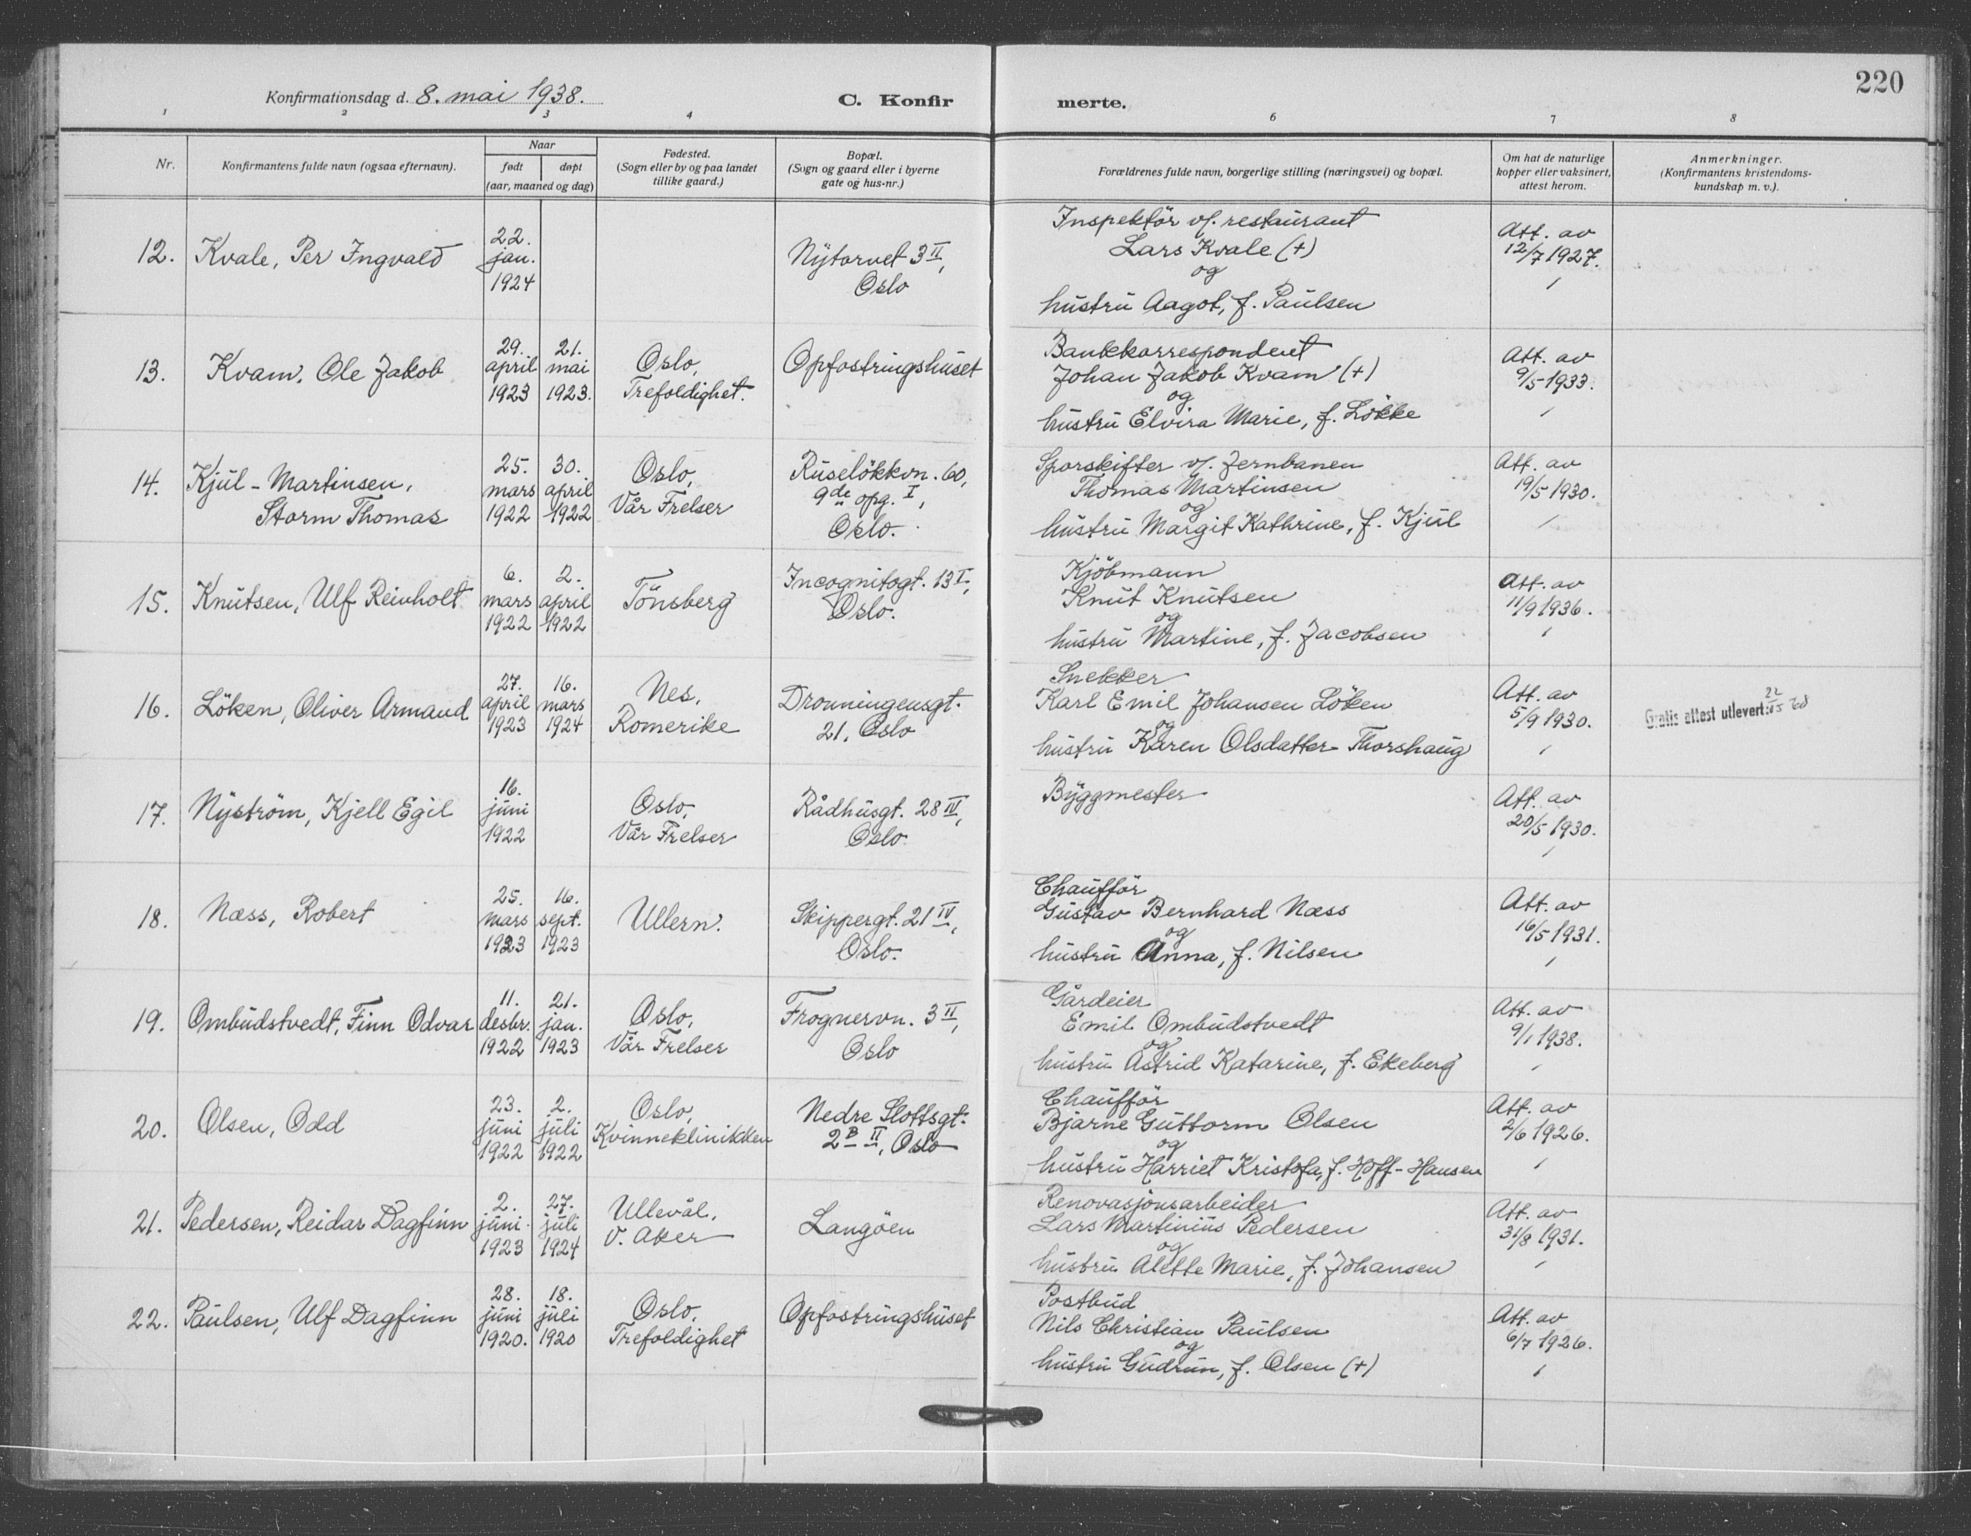 220
Konfirmationsdag d. 8. mai 1938.
C. Konfirmerte.
1 2 3 4 6 7 8
Nr.
Konfirmantens fulde navn (ogsaa efternavn).
Naar
født
døpt
(aar, maaned og dag)
Fødested.
(Sogn eller by og paa landet
tillike gaard.)
Bopæl.
(Sogn og gaard eller i byerne
gate og hus-nr.)
Forældrenes fulde navn, borgerlige stilling (næringsvei) og bopæl.
Om hat de naturlige
kopper eller vaksinert,
attest herom.
Anmerkninger.
(Konfirmantens kristendoms-
kundskap m. v.).
12.
Kvale, Per Ingvald
22.
jan.
1924
Nytorvet 3 II,
Oslo
Inspektör v/. restaurant
Lars Kvale (+)
og
hustru Aagot, f. Paulsen
Att. av
12/7 1927.
13.
Kvam, Ole Jakob
29.
april
1923
21.
mai
1923.
Oslo,
Trefoldighet.
Opfostringshuset
Bankkorrespondent
Johan Jakob Kvam (+)
og
hustru Elvira Marie, f. Lökke
Att. av
9/5 1933.
14.
Kjul-Martinsen,
Storm Thomas
25.
mars
1922
30.
april
1922
Oslo,
Vår Frelser
Ruselökkvn. 60,
9de opg. I,
Oslo.
Sporskifter v/. Jernbanen
Thomas Martinsen
og
hustru Margit Kathrine, f. Kjul
Att. av
19/5 1930.
15.
Knutsen, Ulf Reinholt
6.
mars
1922
2.
april
1922
Tönsberg
Incognitogt. 13 I,
Oslo.
Kjöbmann
Knut Knutsen
og
hustru Martine, f. Jacobsen
Att. av
11/9 1936.
16.
Löken, Oliver Armand
27.
april
1923
16.
mars
1924
Nes,
Romerike
Dronningensgt.
21, Oslo
Snekker
Karl Emil Johansen Löken
og
hustru Karen Olsdatter Thorshaug
Att. av
5/9 1930.
Gratis attest utlevert:
17.
Nyström, Kjell Egil
16.
juni
1922
Oslo,
Vår Frelser
Rådhusgt. 28 IV,
Oslo.
Byggmester
Att. av
20/5 1930.
18.
Næss, Robert
25.
mars
1923
16.
sept.
1923
Ullern.
Skippergt. 21 IV,
Oslo.
Chaufför
Gustav Bernhard Næss
og
hustru Anna, f. Nilsen
Att. av
16/5 1931.
19.
Ombudstvedt, Finn Odvar
11.
desbr.
1922
21.
jan.
1923
Oslo,
Vår Frelser
Frognervn. 3 II,
Oslo
Gårdeier
Emil Ombudstvedt
og
hustru Astrid Katarine, f. Ekeberg
Att. av
9/1 1938.
20.
Olsen, Odd
23.
juni
1922
2.
juli
1922
Oslo,
Kvinneklinikken
Nedre Slottsgt.
2 B II, Oslo
Chaufför
Bjarne Guttorm Olsen
og
hustru Harriet Kristofa, f. Hoff-Hansen
Att. av
2/6 1926.
21.
Pedersen, Reidar Dagfinn
2.
juni
1923
27.
juli
1924
Ullevål,
V. Aker
Langöen
Renovasjonsarbeider
Lars Martinius Pedersen
og
hustru Alette Marie, f. Johansen
Att. av
31/8 1931.
22.
Paulsen, Ulf Dagfinn
28.
juni
1920.
18.
juli
1920
Oslo,
Trefoldighet
Opfostringshuset
Postbud
Nils Christian Paulsen
og
hustru Gudrun, f. Olsen (+)
Att. av
6/7 1926.